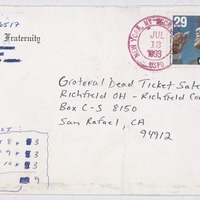 6517
Fraternity
NEW YORK, NY
JUL
13
1993
USPO
29
Grateful Dead Ticket Sale
Richfield OH - Richfield Co
Box C-S 8150
San Rafael, CA
94912
8 * 3
9 * 3
10 * 3
9